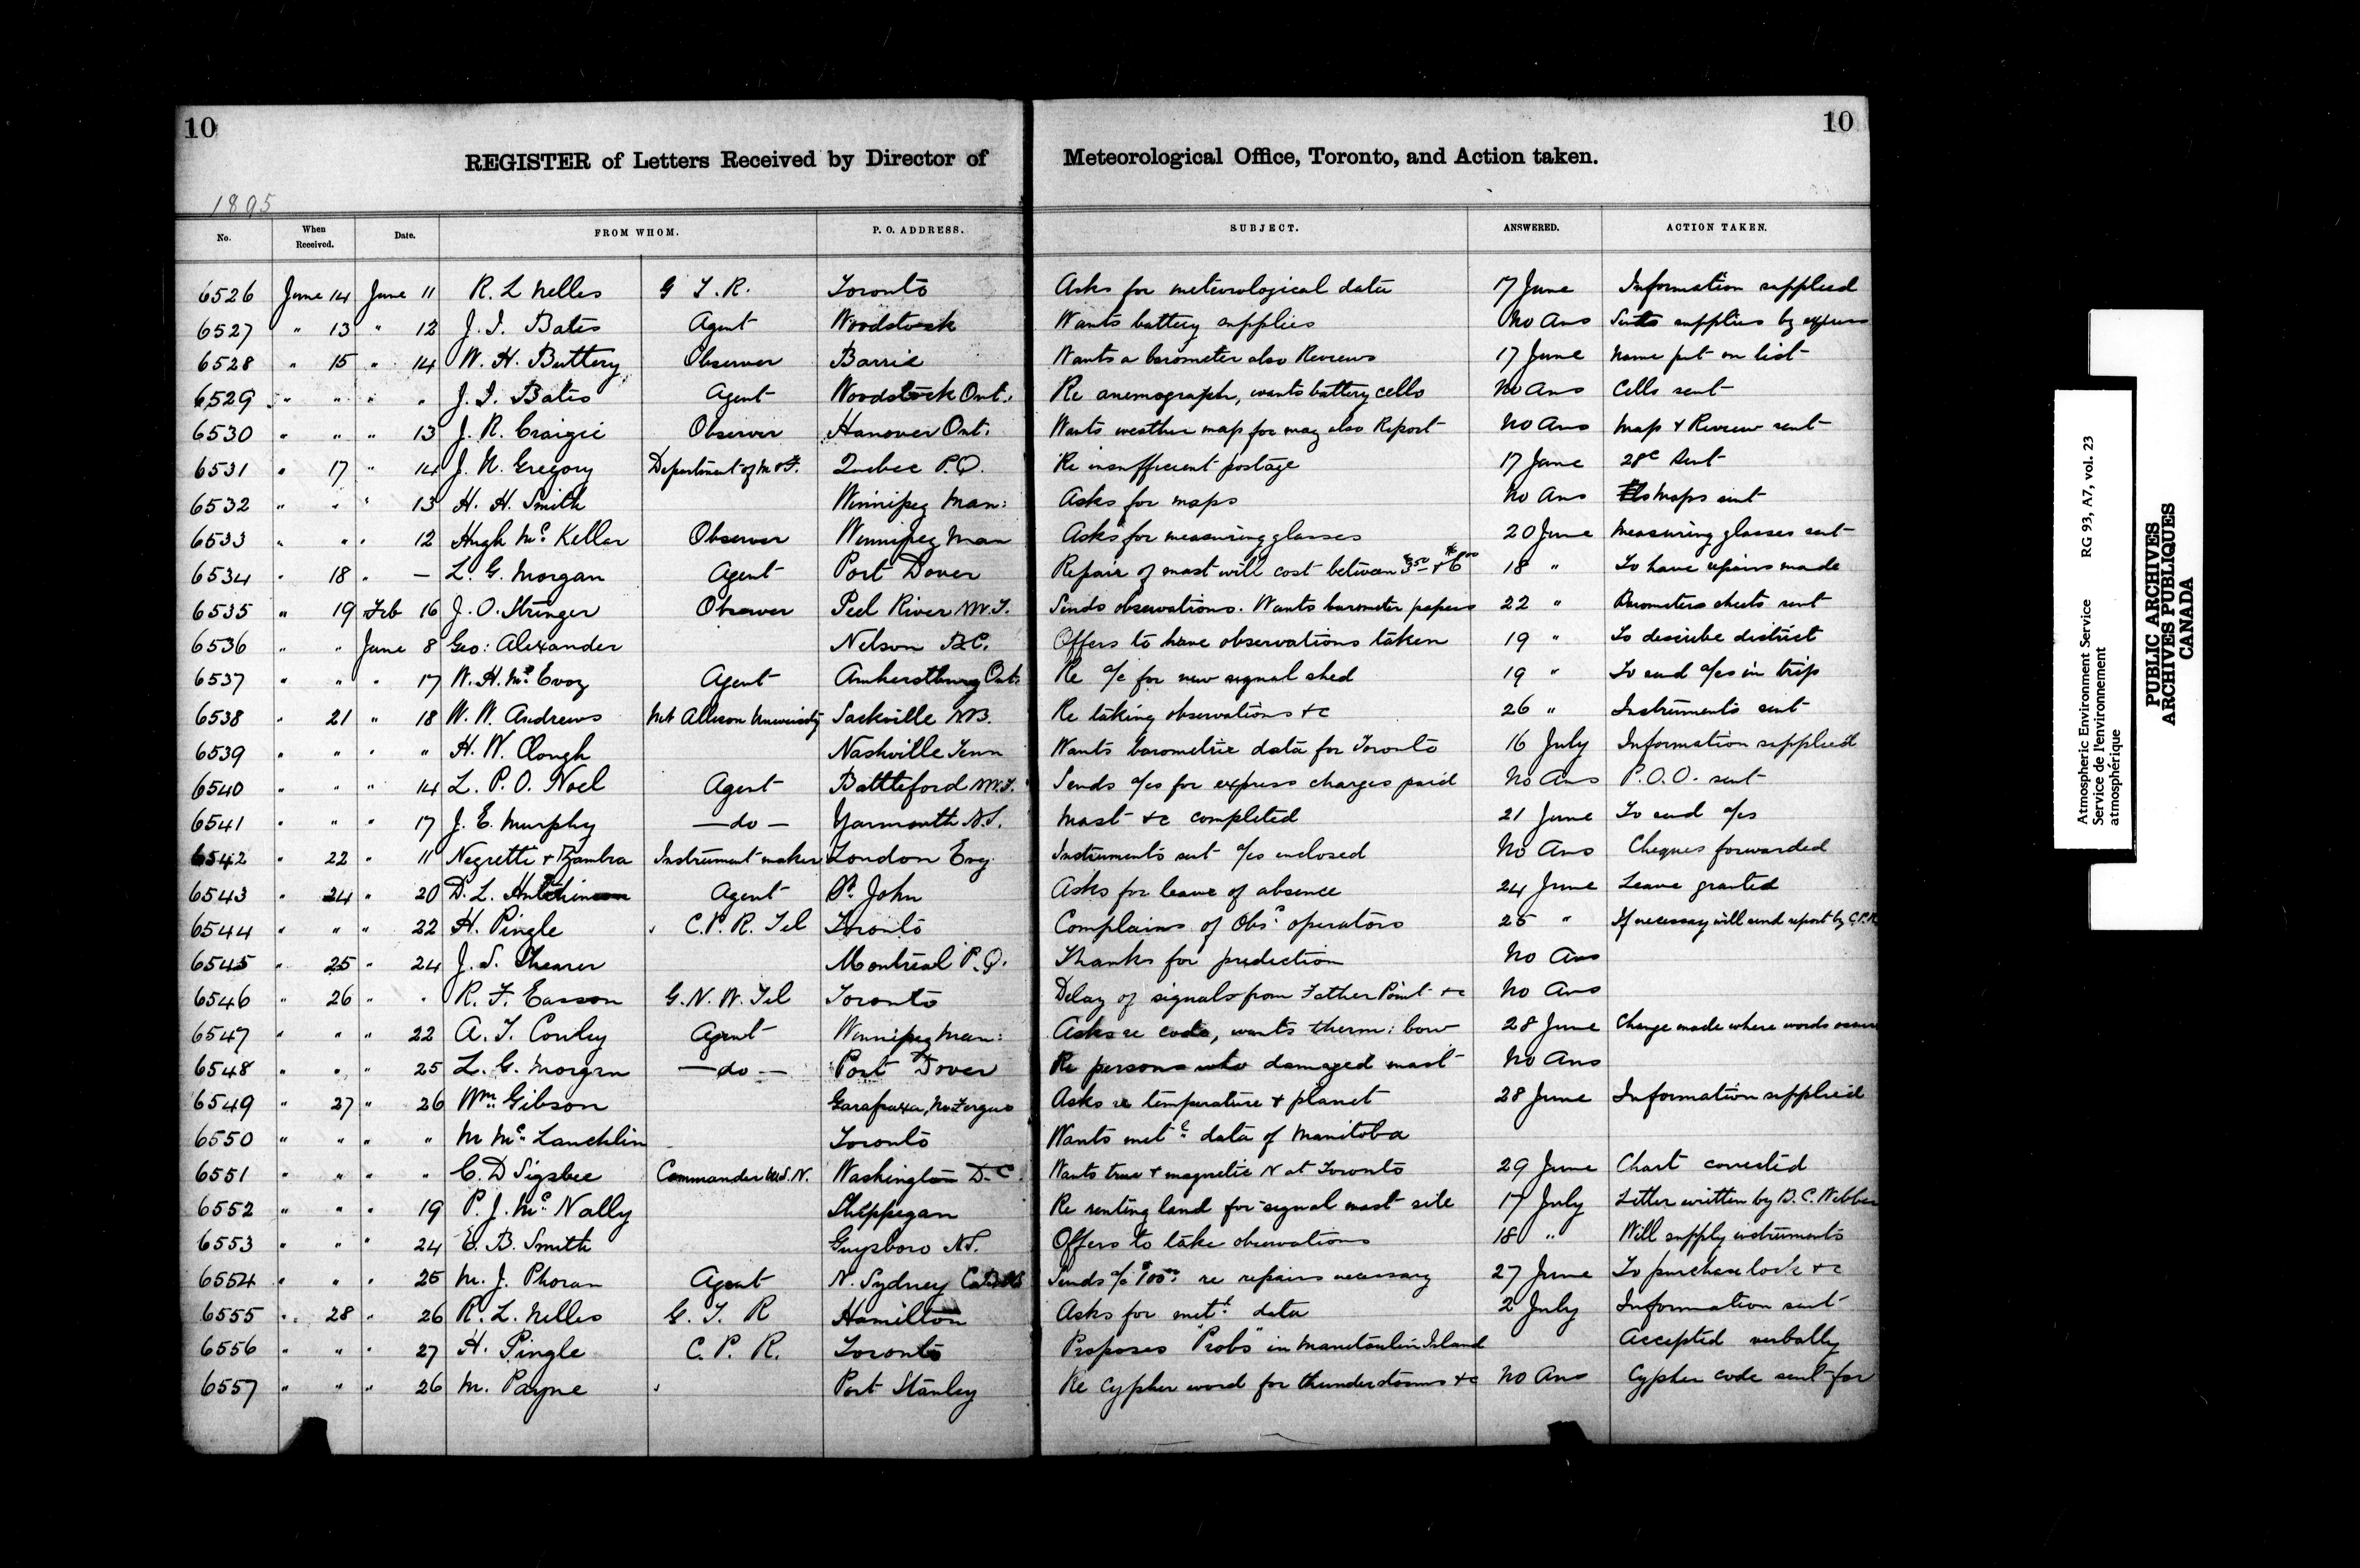 10
10
REGISTER of Letters Received by Director of Meteorological Office, Toronto, and Action taken.
1895
No. When Received. Date. FROM WHOM. P. O. ADDRESS. SUBJECT. ANSWERED. ACTION TAKEN.
6526 June 14 June 11 R. L Nelles G T. R. Toronto Asks for meteorological data 17 June Information supplied
6527 " 13 " 12 J. I. Bates Agent Woodstock Wants battery supplies No Ans supplies by express
6528 " 15 " 14 W. H. Buttery Observer Barrie Wants a barometer also Reviews 17 June Name put on list
6529 " " " " J. I. Bates Agent Woodstock Ont. Re anemograph, wants battery cells No Ans Cells sent
6530 " " " 13 J. R. Craigie Observer Hanover Ont. Wants weather map for may also Report No Ans Map & Review sent
6531 " 17 " 14 J. U. Gregory Department of M & F. Quebec P.Q. Re insufficient postage 17 June 28c Sent
6532 " " " 13 H. H. Smith Winnipeg Man: Asks for maps No Ans Maps sent
6533 " " " 12 Hugh Mc Kellar Observer Winnipeg Man Asks for measuring glasses 20 June Measuring glasses sent
6534 " 18 " — L. G. Morgan Agent Port Dover Repair of mast will cost between 18 " To have repairs made
6535 " 19 Feb 16 J. O. Stringer Observer Peel River N.W.T. Sends observations. Wants barometer papers 22 " Barometers sheets sent
6536 " " June 8 Geo: Alexander Nelson B.C. Offers to have observations taken 19 " To describe district
6537 " " " 17 W. H. Mc Evoy Agent Amherstburg Ont. Re a/c for new signal shed 19 " To send a/cs in trip
6538 " 21 " 18 W. W. Andrews Mt Allison University Sackville N.B. Re taking observations &c 26 " Instruments sent
6539 " " " " H. W. Clough Nashville Tenn Wants barometric data for Toronto 16 July Information supplied
6540 " " " 14 L. P. O. Noel Agent Battleford N.W.T. Sends a/cs for express charges paid No Ans P.O.O. sent
6541 " " " 17 J. E. Murphy — do — Yarmouth N.S. Mast &c completed 21 June To send a/cs
6542 " 22 " 11 Negretti & Zambra Instrument maker London Eng. Instruments sent a/cs enclosed No Ans Cheques forwarded
6543 " 24 " 20 D. L. Hutchinson Agent St. John Asks for leave of absence 24 June Leave granted
6544 " " " 22 H. Pingle C. P. R. Tel Toronto Complains of Obs. operators 25 " If necessary will send report by C.P.R
6545 " 25 " 24 J. S. Shearer Montreal P.Q. Thanks for prediction No Ans
6546 " 26 " " R. F. Easson G. N. W. Tel Toronto Delay of signals from Father Point &c No Ans
6547 " " " 22 A. T. Conley Agent Winnipeg Man: Asks re code, wants therm: bow 28 June Change made where words
6548 " " " 25 L. G. Morgan — do — Port Dover Re persons who damaged mast No Ans
6549 " 27 " 26 Wm. Gibson Garafraxa, Fergus Asks re temperature & planet 28 June Information supplied
6550 " " " " M Mc Lauchlin Toronto Wants metl data of Manitoba
6551 " " " " C. D Sigsbee Commander U.S.N. Washington D.C. Wants true & magnetic N at Toronto 29 June Chart corrected
6552 " " " 19 P. J. Mc Nally Shippegan Re renting land for signal mast site 17 July Letter written by B. C. Webber
6553 " " " 24 E. B. Smith Guysboro N.S. Offers to take observations 18 " Will supply instruments
6554 " " " 25 M. J. Phoran Agent N. Sydney Sends a/c re repairs necessary 27 June To purchase lock &c
6555 " 28 " 26 R. L. Nelles G. T. R Hamilton Asks for metl data 2 July Information sent
6556 " " " 27 H. Pingle C. P. R. Toronto Proposes "Probs" in Manitoulin Island Accepted verbally
6557 " " " 26 M. Payne Port Stanley Re Cypher word for thunderstorms &c No Ans Cypher code sent for
Atmospheric Environment Service RG 93, A7, vol. 23
Service de l'environnement
atmosphérique
PUBLIC ARCHIVES
ARCHIVES PUBLIQUES
CANADA